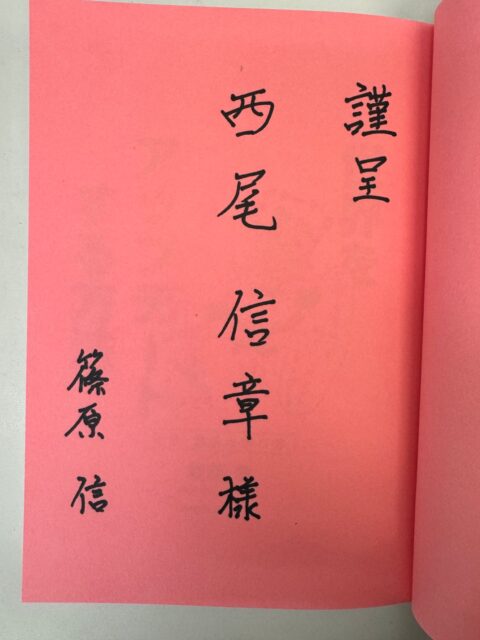 謹呈
西尾信章様
篠原信